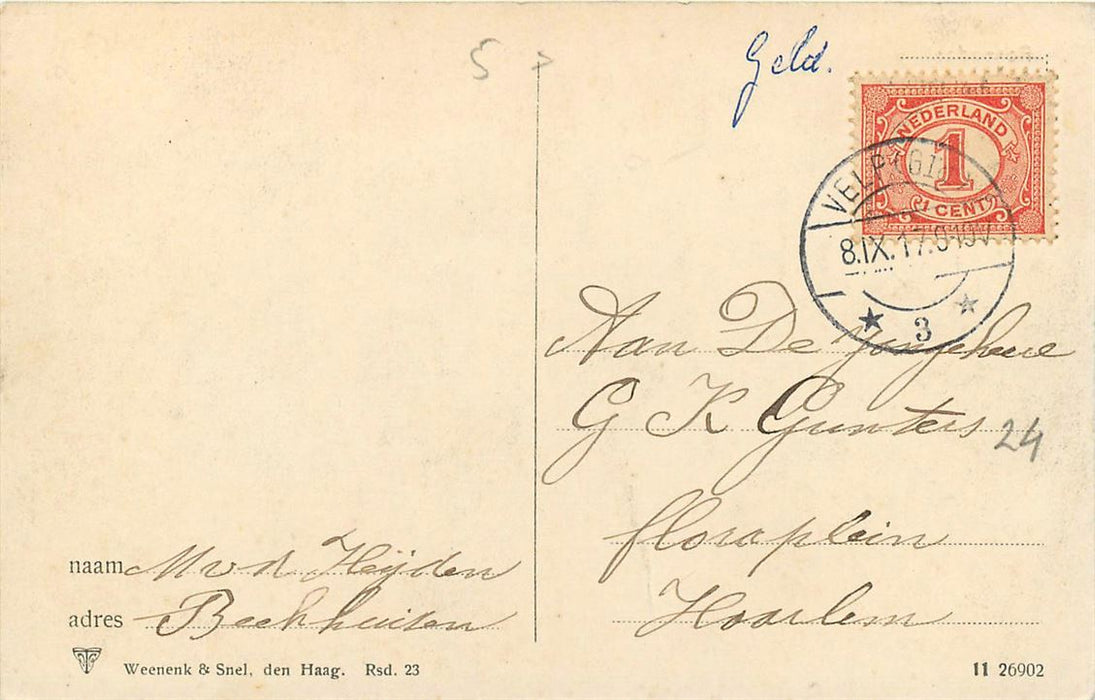 5 >
Geld.
NEDERLAND
1
1 CENT
VELP (GLD
8.IX.17.9-10V
3
Aan De Jongeheer
G K Gunters
24
floraplein
Haarlem
naam M v d Heijden
adres Beekhuizen
Weenenk & Snel, den Haag. Rsd. 23
11 26902